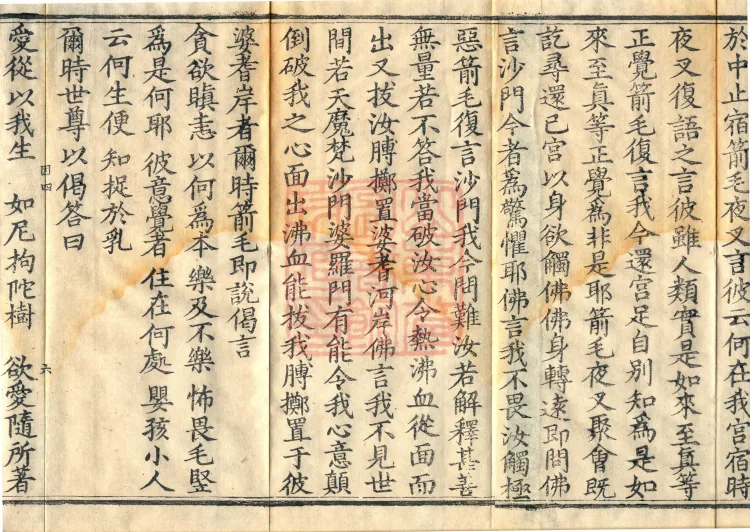 於中止宿箭毛夜叉言彼云何在我宮宿時
夜叉復語之言彼雖人類實是如來至真等
正覺箭毛復言我今還宮足自別知為是如
來至真等正覺為非是耶箭毛夜叉聚會既
訖尋還已宮以身欲觸佛佛身轉遠即問佛
言沙門今者為驚懼耶佛言我不畏汝觸極
惡箭毛復言沙門我今問難汝若解釋甚善
無量若不答我當破汝心令熱沸血從面而
出又拔汝膊擲置婆耆河岸佛言我不見世
間若天魔梵沙門婆羅門有能令我心意顛
倒破我之心面出沸血能拔我膊擲置于彼
婆耆岸者爾時箭毛即說偈言
貪欲瞋恚 以何為本 樂及不樂 怖畏毛竪
為是何耶 彼意覺者 住在何處 嬰孩小人
云何生便 知捉於乳
爾時世尊以偈答曰
愛從以我生 如尼拘陀樹 欲愛隨所著
六